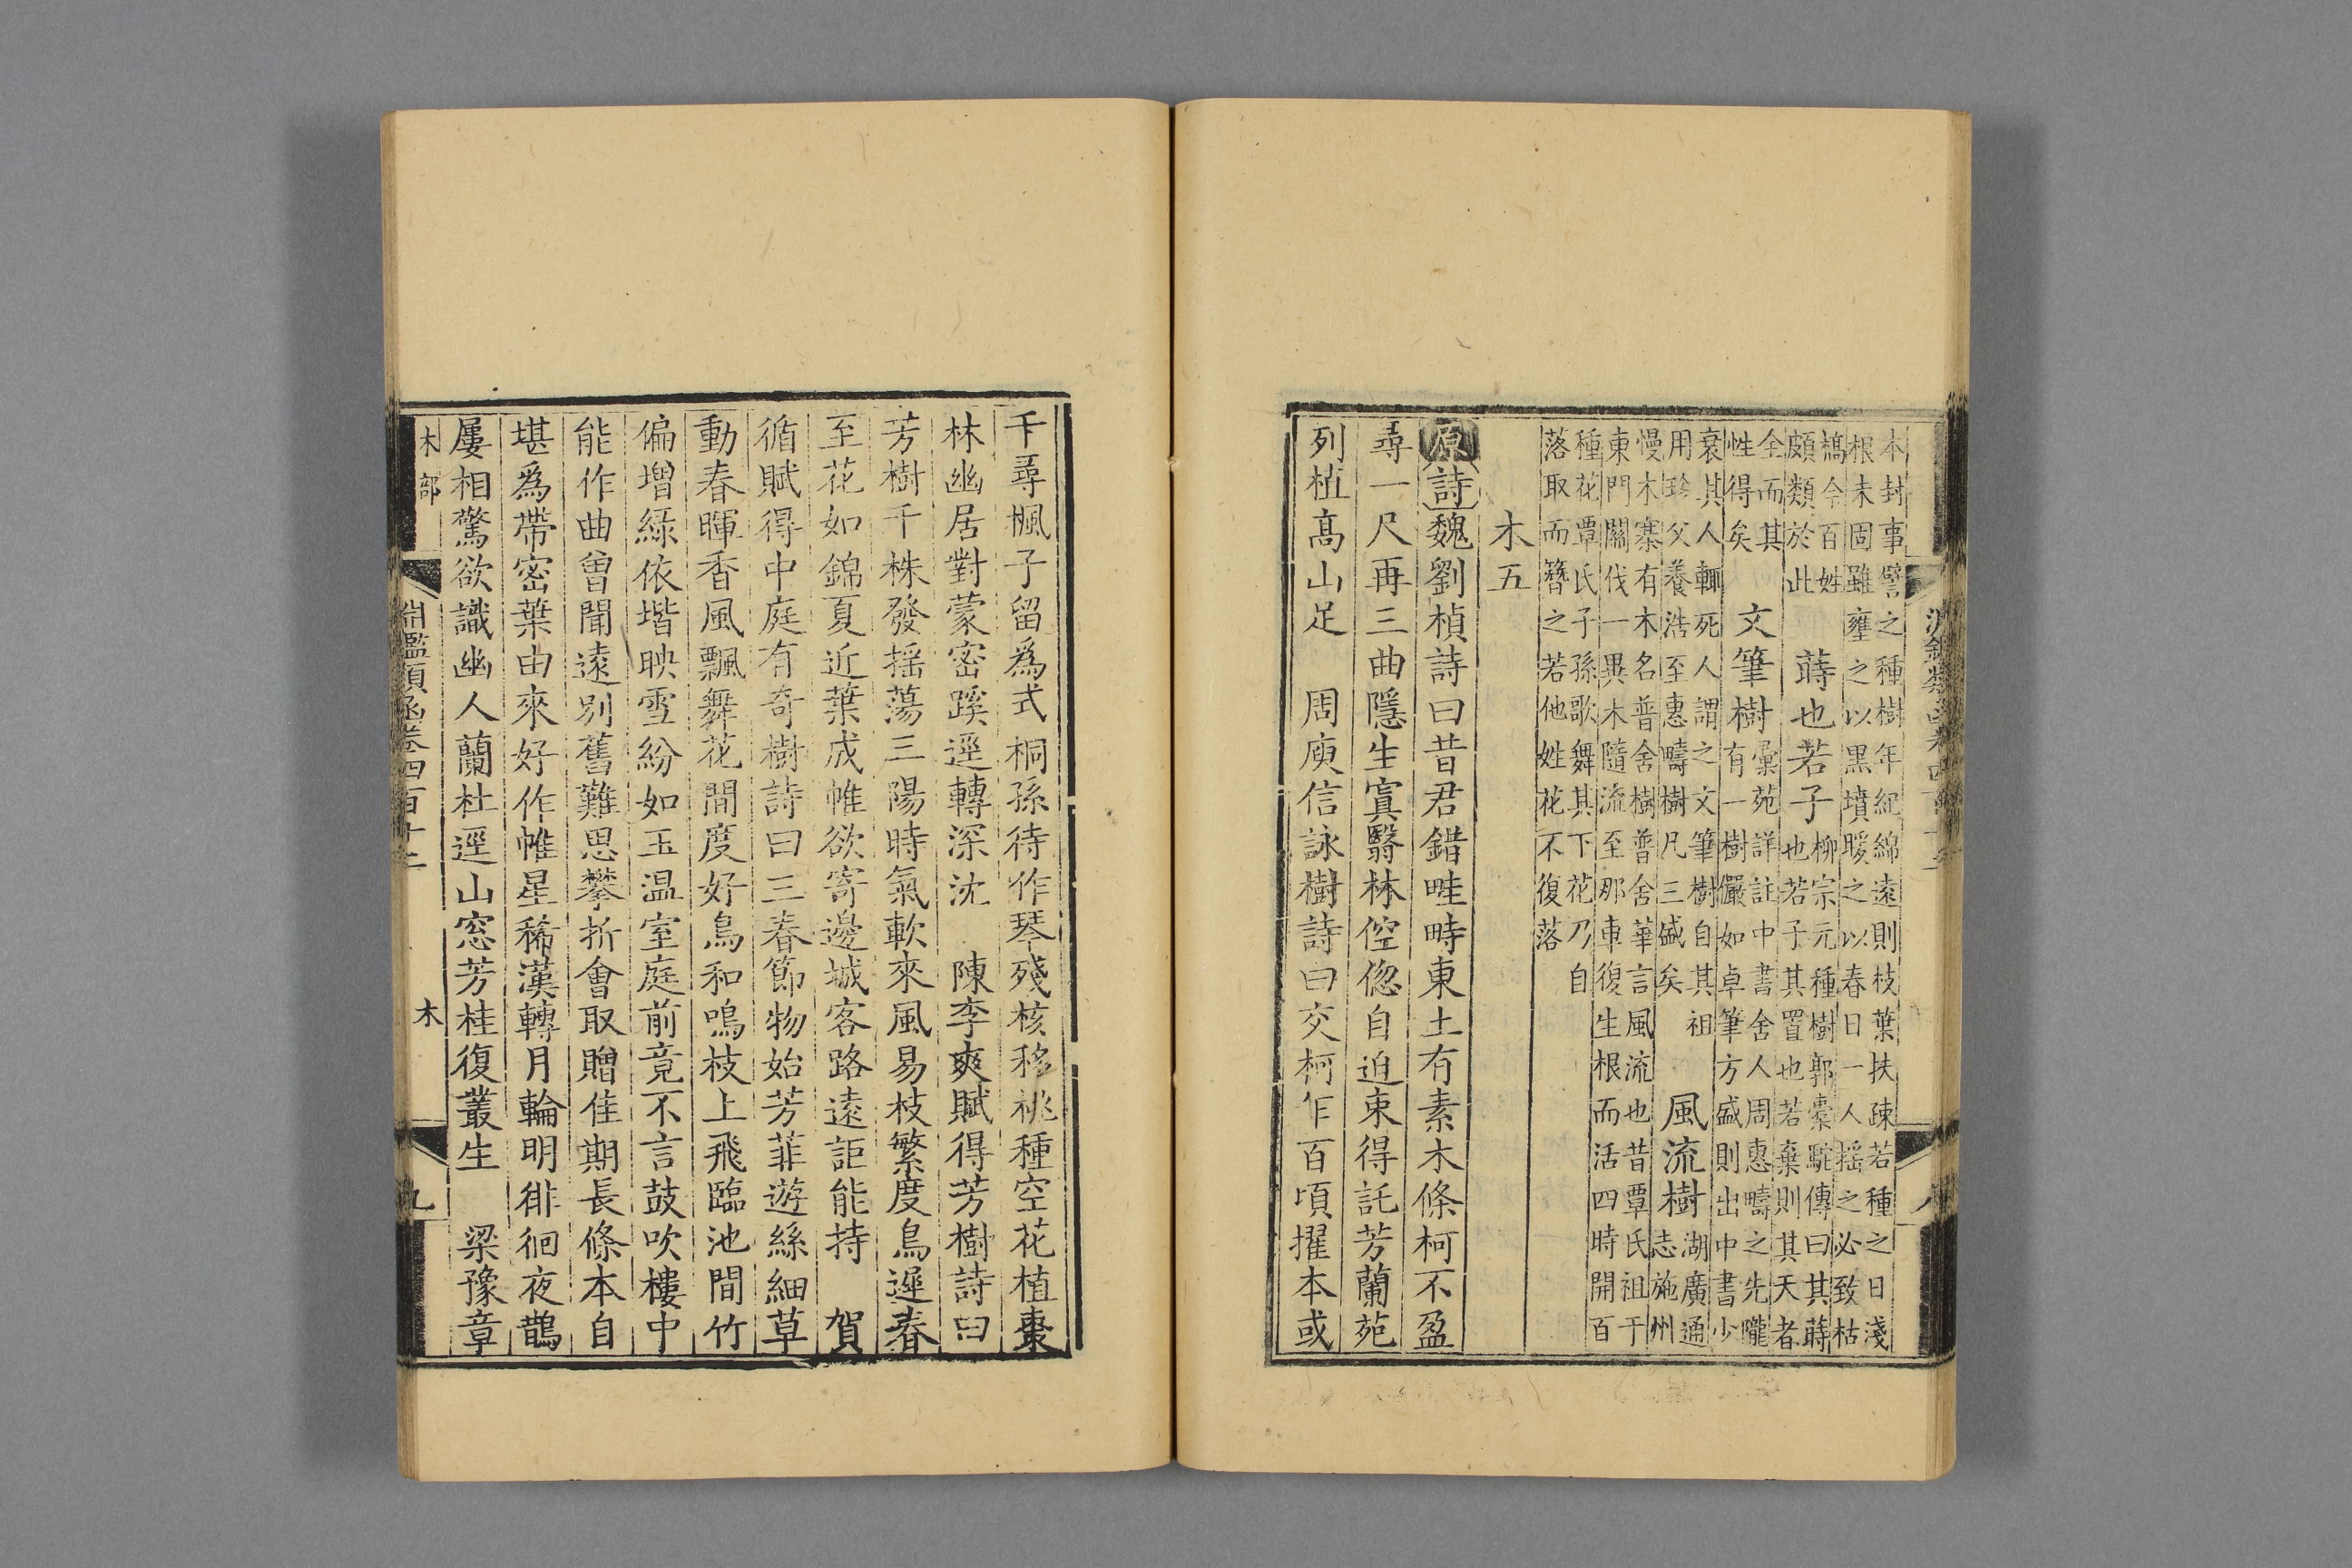 本封事譬之種樹年紀綿遠則枝葉扶疎若種之日淺
根未固雖壅之以黑墳暖之以春日一人揺之必致枯
槁今百姓
頗類於此
蒔也若子
柳宗元種樹郭橐駝傳曰其蒔
也若子其置也若棄則其天者
全而其
性得矣
文筆樹
彙苑詳註中書舍人周惠疇之先隴
有一樹儼如卓筆方盛則出中書少
衰其人輒死人謂之文筆樹自其祖
用珍父養浩至惠疇樹凡三盛矣
風流樹
湖廣通
志施州
慢木寨有木名普舍樹普舍華言風流也昔覃氏祖于
東門關伐一異木隨流至那車復生根而活四時開百
種花覃氏子孫歌舞其下花乃自
落取而簪之若他姓花不復落
木五
原詩魏劉楨詩曰昔君錯畦畤東土有素木條柯不盈
尋一尺再三曲隱生寘翳林倥偬自迫束得託芳蘭苑
列植高山足　周庾信詠樹詩曰交柯乍百頃擢本或
千尋楓子留爲式桐孫待作琴殘核移桃種空花植棗
林幽居對蒙密蹊逕轉深沈　陳李爽賦得芳樹詩曰
芳樹千株發揺蕩三陽時氣軟來風易枝繁度鳥遲春
至花如錦夏近葉成帷欲寄邊城客路遠詎能持　賀
循賦得中庭有奇樹詩曰三春節物始芳菲遊絲細草
動春暉香風飄舞花間度好鳥和鳴枝上飛臨池間竹
偏增綠依堦映雪紛如玉温室庭前竟不言鼓吹樓中
能作曲曾聞遠別舊難思攀折會取贈佳期長條本自
堪爲帶密葉由來好作帷星稀漢轉月輪明徘徊夜鵲
屢相驚欲識幽人蘭杜逕山窓芳桂復叢生　梁豫章
木部　淵鑑類函卷四百十二　木　九